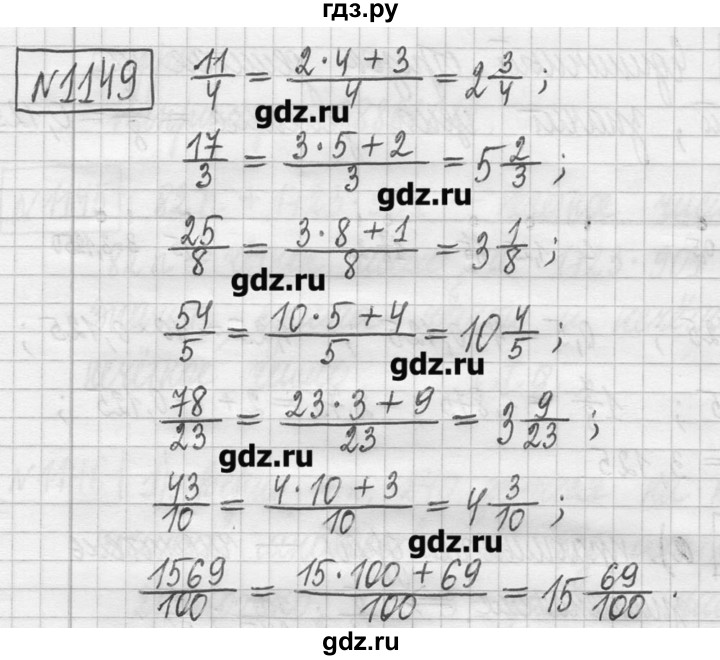 гдз.ру
№1149 11/4 = (2·4+3)/4 = 2 3/4 ;
gdz.ru
17/3 = (3·5+2)/3 = 5 2/3 ;
gdz.ru
25/8 = (3·8+1)/8 = 3 1/8 ;
gdz.ru
54/5 = (10·5+4)/5 = 10 4/5 ;
gdz.ru
78/23 = (23·3+9)/23 = 3 9/23 ;
gdz.ru
43/10 = (4·10+3)/10 = 4 3/10 ;
gdz.ru
1569/100 = (15·100+69)/100 = 15 69/100 .
gdz.ru